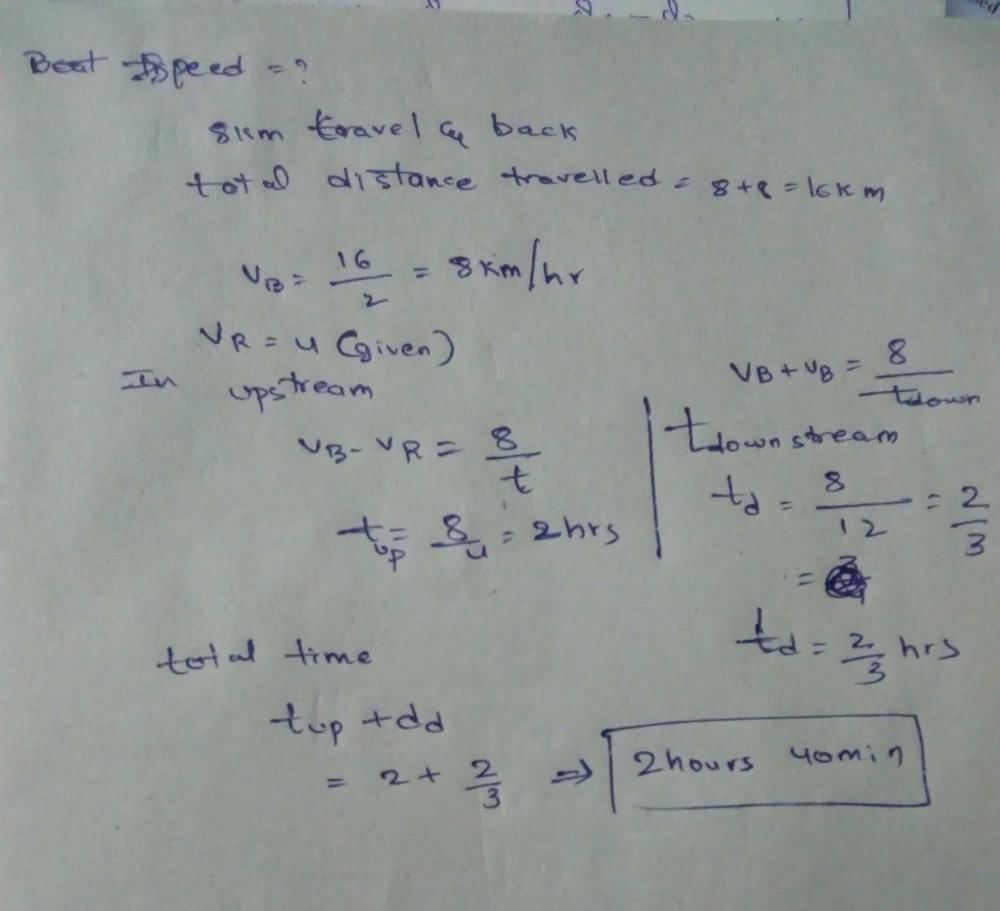 Boat Speed = ?
8km travel & back
total distance travelled = 8+8 = 16km
VB = 16/2 = 8km/hr
VR = 4 (given)
In upstream
VB - VR = 8/t
tup = 8/4 = 2hrs
VB + VB = 8/tdown
tdownstream
td = 8/12 = 2/3
=
td = 2/3 hrs
total time
tup + dd
= 2 + 2/3 ⇒ 2hours 40min